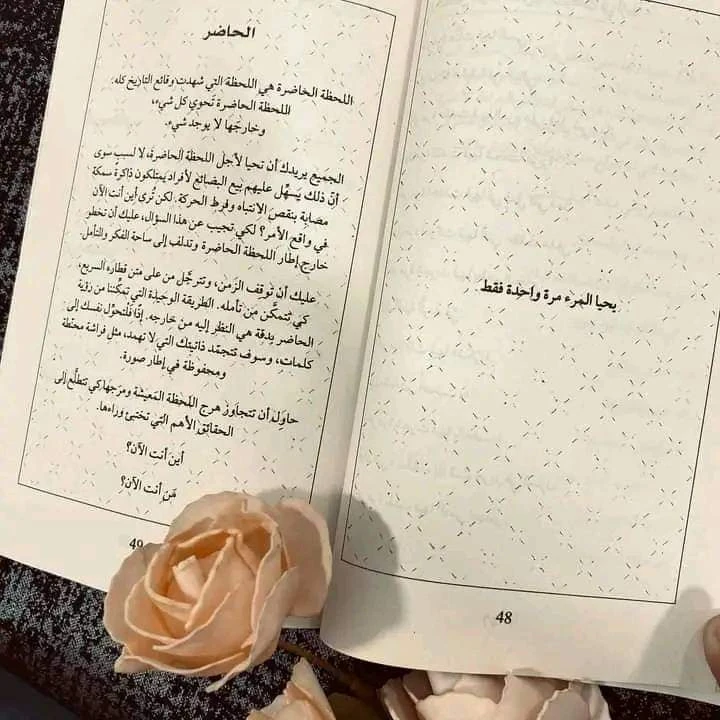 يحيا المرء مرة واحدة فقط
48
الحاضر
اللحظة الحاضرة هي اللحظة التي شهدت وقائع التاريخ كله.
اللحظة الحاضرة تحوي كل شيء،
وخارجها لا يوجد شيء.
الجميع يريدك أن تحيا لأجل اللحظة الحاضرة، لا لسبب سوى
أنّ ذلك يَسهُل عليهم بيع البضائع لأفراد يمتلكون ذاكرة سمكة
مصابة بنقص الانتباه وفرط الحركة. لكن تُرى أين أنت الآن
في واقع الأمر؟ لكي تجيب عن هذا السؤال، عليك أن تخطو
خارج إطار اللحظة الحاضرة وتدلف إلى ساحة الفكر والتأمل.
عليك أن توقِف الزمن، وتترجَّل من على متن قطاره السريع،
كي تتمكَّن مِن تأمله. الطريقة الوحيدة التي تمكِّننا من رؤية
الحاضر بدقة هي النظر إليه من خارجه. إذًا فلتحوِّل نفسك إلى
كلمات، وسوف تتجمّد ذاتيتك التي لا تهمد، مثل فراشة محنّطة
ومحفوظة في إطار صورة.
حاوِل أن تتجاوز هرج اللحظة المَعيشة ومرَجها كي تتطلَّع إلى
الحقائق الأهم التي تختبئ وراءها.
أين أنت الآن؟
مَن أنت الآن؟
49